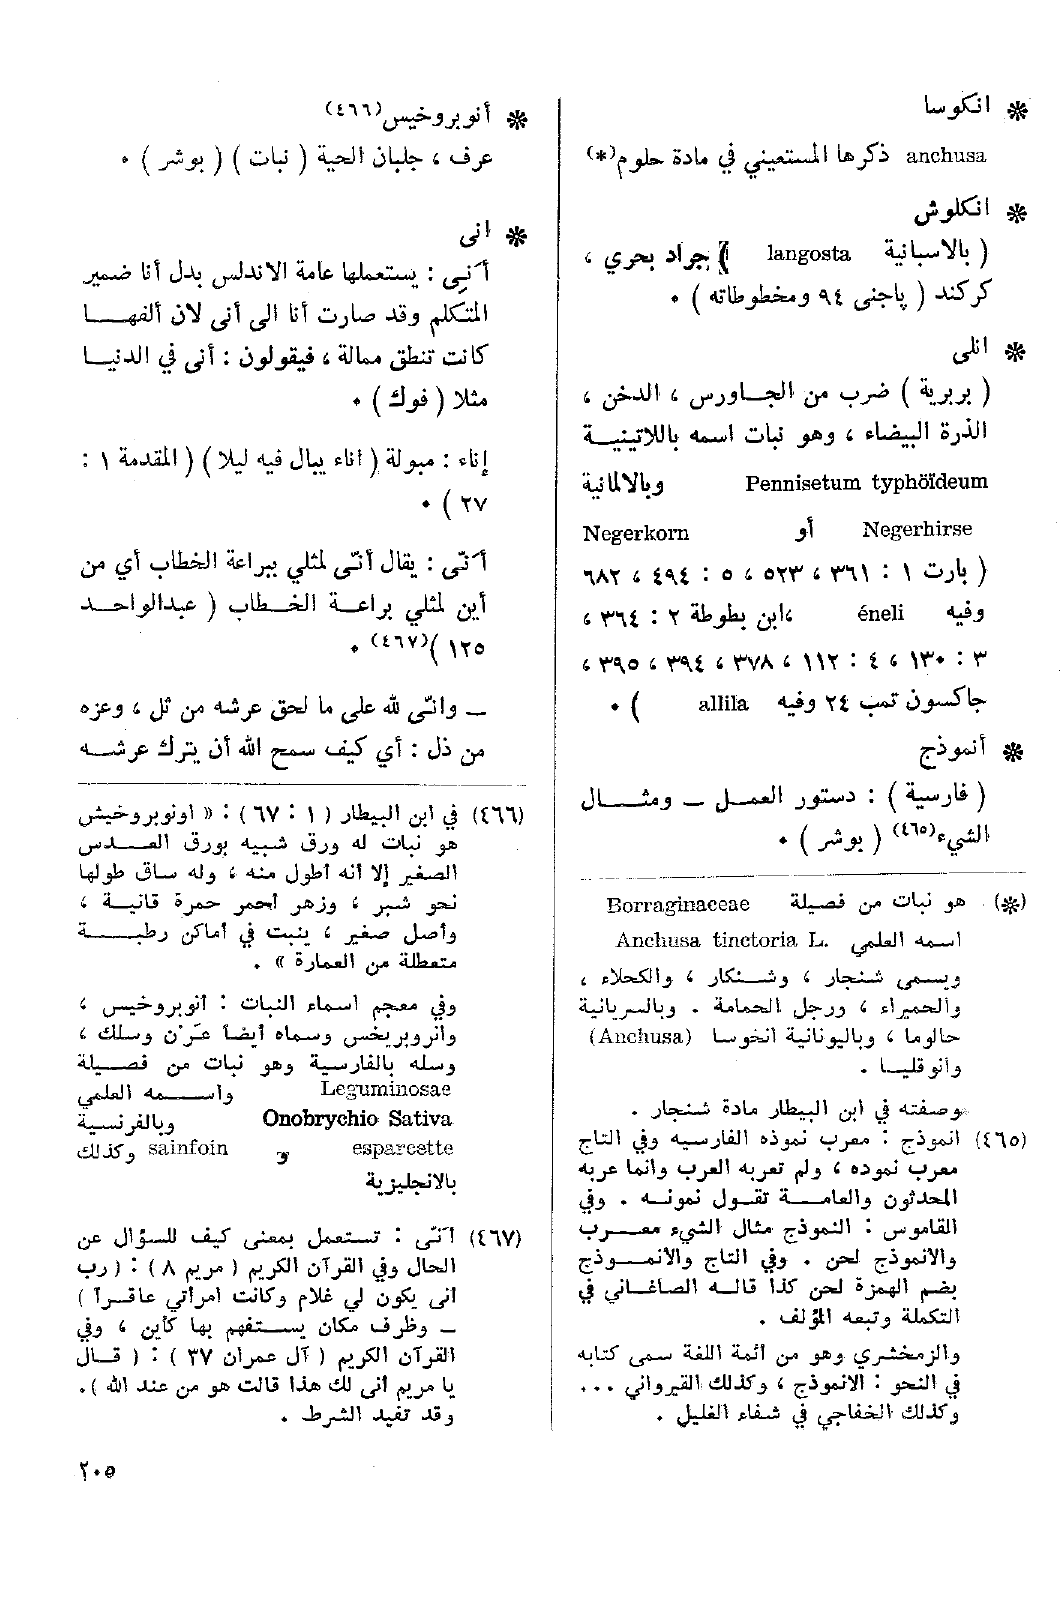 ❋ انكوسا
anchusa ذكرها المستعيني في مادة حلوم(*)
❋ انكلوش
( بالاسبانية langosta ) جراد بحري ،
كركند ( پاجنى ٩٤ ومخطوطاته ) ٠
❋ انلى
( بربرية ) ضرب من الجاورس ، الدخن ،
الذرة البيضاء ، وهو نبات اسمه باللاتينية
Pennisetum typhöïdeum وبالالمانية
Negerhirse أو Negerkorn
( بارت ١ : ٣٦١ ، ٥٢٣ ، ٥ : ٤٩٤ ، ٦٨٢
وفيه éneli ،ابن بطوطة ٢ : ٣٦٤ ،
٣ : ١٣٠ ، ٤ : ١١٢ ، ٣٧٨ ، ٣٩٤ ، ٣٩٥ ،
جاكسون تمب ٢٤ وفيه allila ) ٠
❋ أنموذج
( فارسية ) : دستور العمل ــ ومثال
الشيء(٤٦٥) ( بوشر ) ٠
(❋) هو نبات من فصيلة Borraginaceae
اسمه العلمي Anchusa tinctoria L.
ويسمى شنجار ، وشنكار ، والكحلاء ،
والحميراء ، ورجل الحمامة . وبالسريانية
حالوما ، وباليونانية انخوسا (Anchusa)
وانوقليا .
وصفته في ابن البيطار مادة شنجار .
(٤٦٥) انموذج : معرب نموذه الفارسيه وفي التاج
معرب نموده ، ولم تعربه العرب وانما عربه
المحدثون والعامة تقول نمونه . وفي
القاموس : النموذج مثال الشيء معرب
والانموذج لحن . وفي التاج والانموذج
بضم الهمزة لحن كذا قاله الصاغاني في
التكملة وتبعه المؤلف .
والزمخشري وهو من ائمة اللغة سمى كتابه
في النحو : الانموذج ، وكذلك القيرواني ...
وكذلك الخفاجي في شفاء الغليل .
❋ أنوبروخيس(٤٦٦)
عرف ، جلبان الحية ( نبات ) ( بوشر ) ٠
❋ انى
أَنِي : يستعملها عامة الاندلس بدل أنا ضمير
المتكلم وقد صارت أنا الى أنى لان ألفها
كانت تنطق ممالة ، فيقولون : أنى في الدنيا
مثلا ( فوك ) ٠
إناء : مبولة ( اناء يبال فيه ليلا ) ( المقدمة ١ :
٢٧ ) ٠
أَنّى : يقال أنّى لمثلي ببراعة الخطاب أي من
أين لمثلي براعة الخطاب ( عبدالواحد
١٢٥ )(٤٦٧) ٠
ــ وانّى لله على ما لحق عرشه من ثل ، وعزه
من ذل : أي كيف سمح الله أن يترك عرشه
(٤٦٦) في ابن البيطار ( ١ : ٦٧ ) : « اونوبروخيش
هو نبات له ورق شبيه بورق العدس
الصغير إلا انه أطول منه ، وله ساق طولها
نحو شبر ، وزهر أحمر حمرة قانية ،
وأصل صغير ، ينبت في أماكن رطبة
متعطلة من العمارة » .
وفي معجم اسماء النبات : أنوبروخيس ،
وانروبريخس وسماه أيضا عرْن وسلك ،
وسله بالفارسية وهو نبات من فصيلة
Leguminosae واسمه العلمي
Onobrychio Sativa وبالفرنسية
esparcette و sainfoin وكذلك
بالانجليزية
(٤٦٧) أَنّى : تستعمل بمعنى كيف للسؤال عن
الحال وفي القرآن الكريم ( مريم ٨ ) : ( رب
انى يكون لي غلام وكانت امرأتي عاقرآ )
ــ وظرف مكان يستفهم بها كأين ، وفي
القرآن الكريم ( آل عمران ٣٧ ) : ( قال
يا مريم أنى لك هذا قالت هو من عند الله ).
وقد تفيد الشرط .
٢٠٥